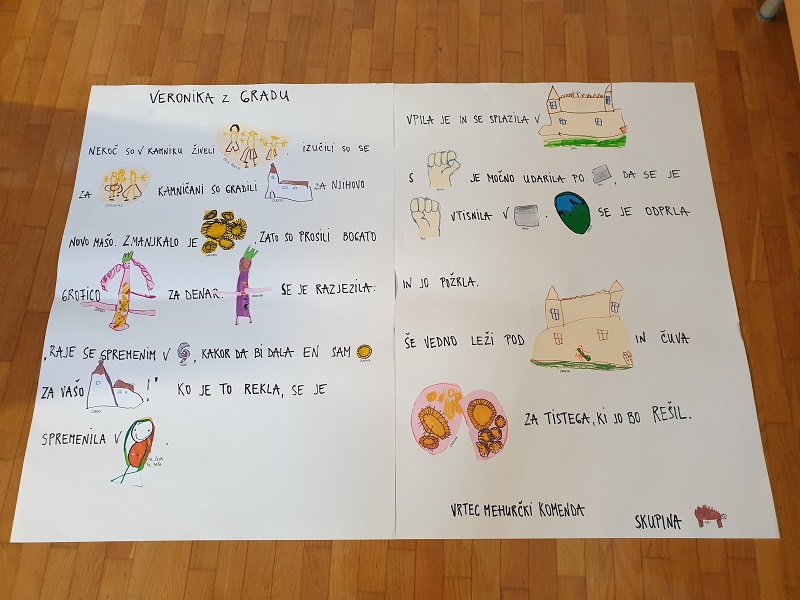 VERONIKA Z GRADU
NEKOČ SO V KAMNIKU ŽIVELI . IZUČILI SO SE
ZA KAMNIČANI SO GRADILI ZA NJIHOVO
NOVO MAŠO. ZMANJKALO JE , ZATO SO PROSILI BOGATO
GROFICO ZA DENAR. SE JE RAZJEZILA:
"RAJE SE SPREMENIM V , KAKOR DA BI DALA EN SAM
ZA VAŠO !" KO JE TO REKLA, SE JE
SPREMENILA V .
VPILA JE IN SE SPLAZILA V
S JE MOČNO UDARILA PO , DA SE JE
VTISNILA V . SE JE ODPRLA
IN JO POŽRLA.
ŠE VEDNO LEŽI POD IN ČUVA
ZA TISTEGA, KI JO BO REŠIL.
VRTEC MEHURČKI KOMENDA
SKUPINA